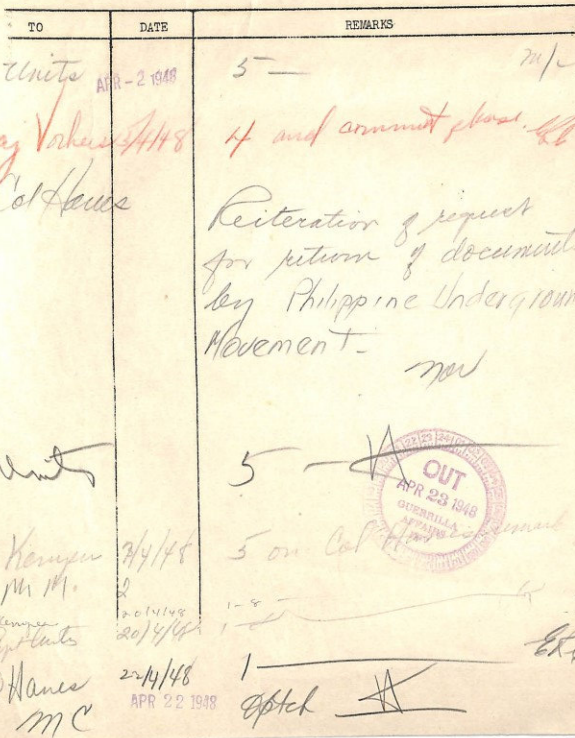 TO DATE REMARKS
Units APR - 2 1948 5 — m/-
5/4/48 4 and comment please
Col Hanes
Reiteration of request
for return of documents
by Philippine Underground
Movement -
Units 5 -
OUT
APR 23 1948
GUERRILLA
AFFAIRS
Kemper 7/4/48 5 on Col Hanes
Mr M. 2
Kemper 20/4/48 1-8
20/4/48
Hanes 22/4/48 1
MC APR 22 1948 dptch